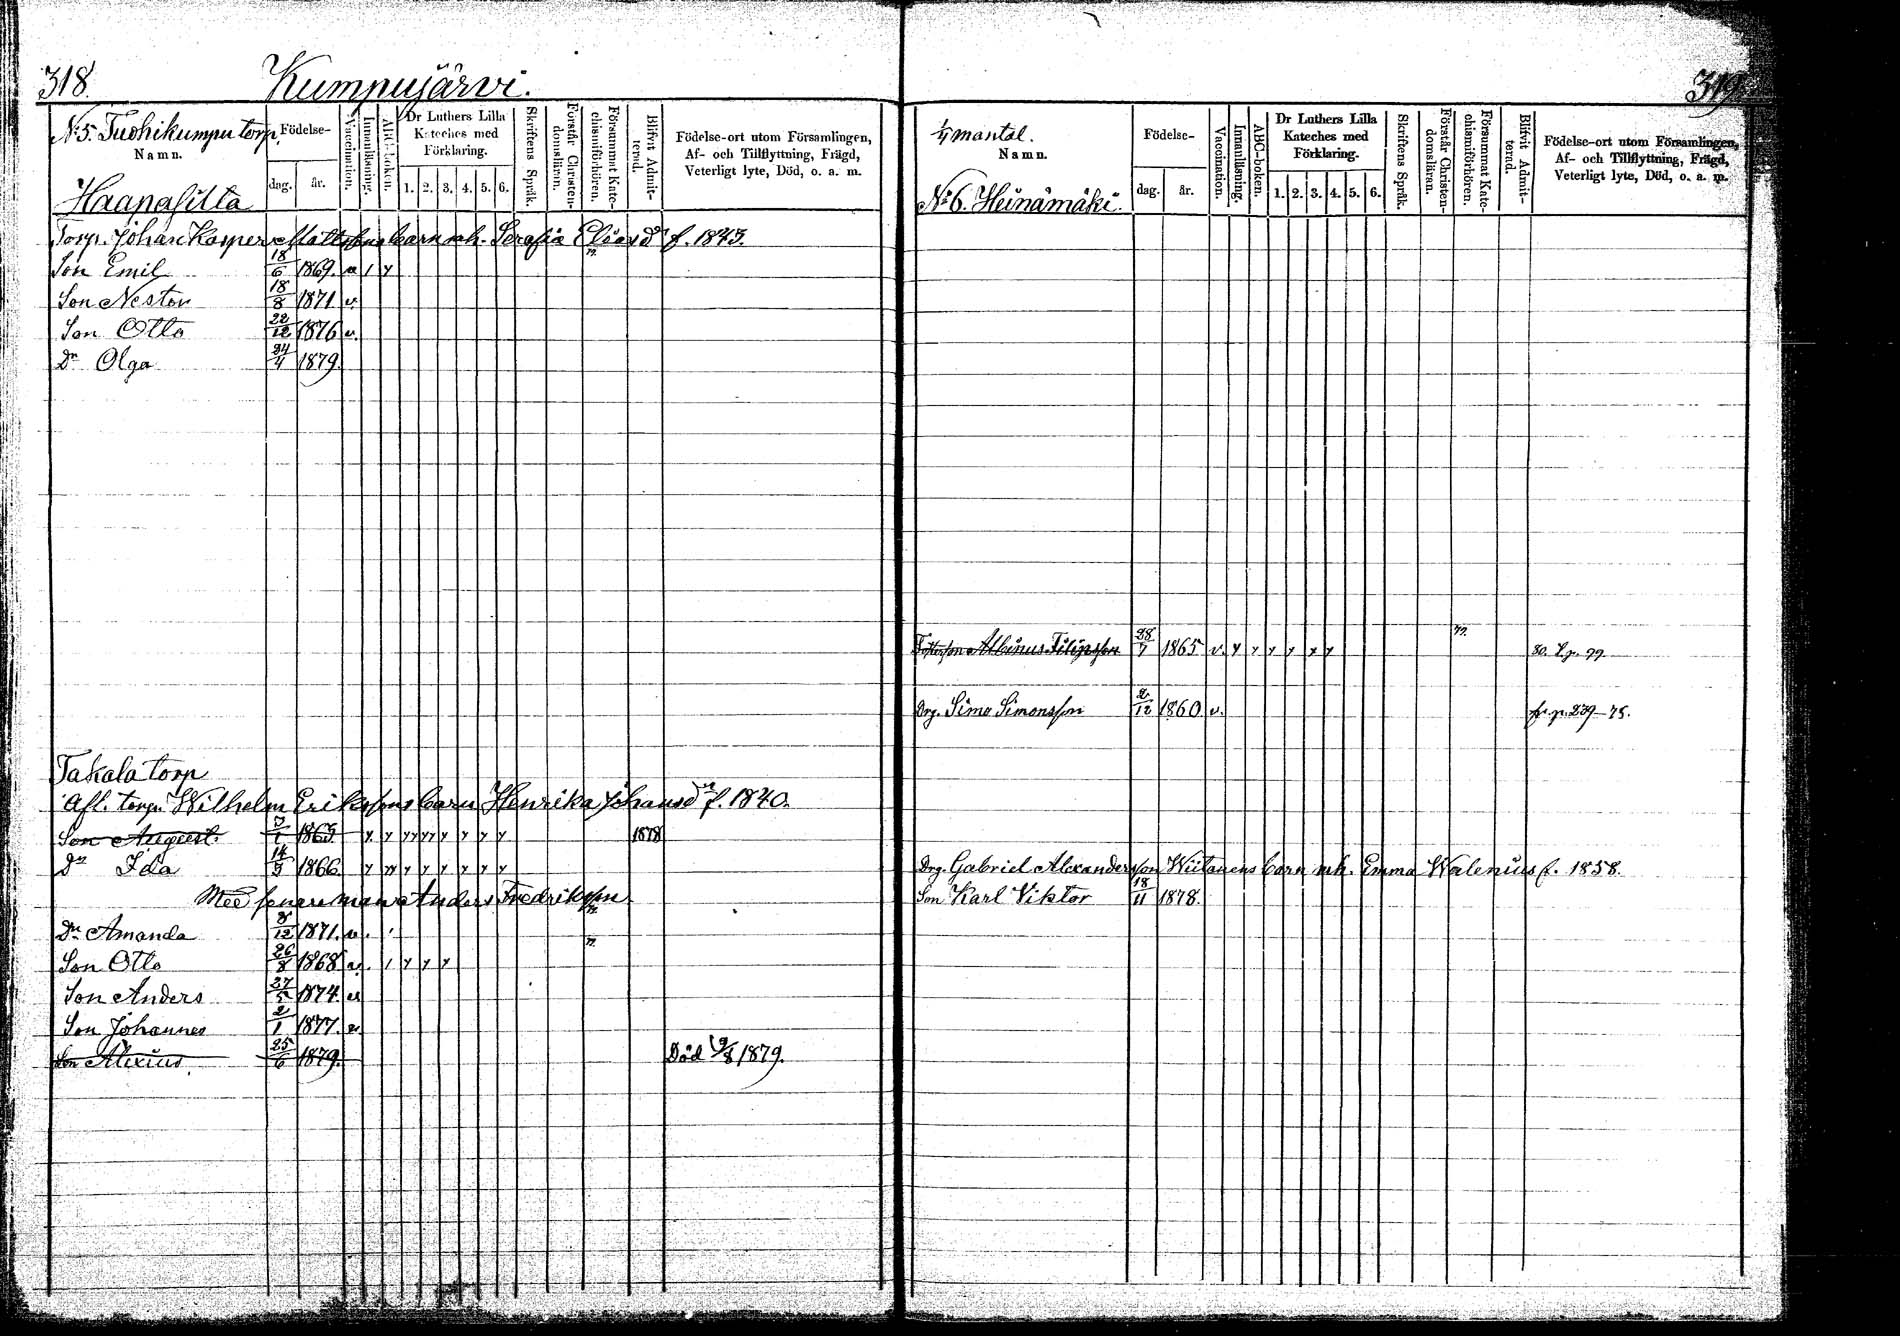 318.
Kumpujärvi.
N:5. Tuohikumpu torp.
Namn.
Haapasilta
Födelse-
dag.
år.
Vaccination.
Innanläsning.
ABC-boken.
Dr Luthers Lilla
Kateches med
Förklaring.
1. 2. 3. 4. 5. 6.
Skriftens Språk.
Förstår Christen-
domsläran.
Försummat Kate-
chismiförhören.
Blifvit Admit-
terad.
Födelse-ort utom Församlingen,
Af- och Tillflyttning, Frägd,
Veterligt lyte, Död, o. a. m.
Torp. Johan Kasper Mattssons barn mh. Serafia Eliasdr f. 1843.
Son Emil 18/6 1869. v
Son Nestor 18/8 1871 v.
Son Otto 22/12 1876 v.
Dr Olga 24/4 1879.
Takala torp
Afl. torp. Wilhelm Erikssons barn Henrika Johansdr f. 1840.
Son August. 1863 1878
Dr Ida 14/3 1866
Med senare man Anders Fredriksson
Dr Amanda 8/12 1871. v.
Son Otto 26/8 1868 v.
Son Anders 27/5 1874. v
Son Johannes 2/1 1877. v.
Son Alexius 25/6 1879. Död 19/8 1879.
319.
1/4 mantal.
Namn.
N:6. Heinämäki.
Födelse-
dag.
år.
Vaccination.
Innanläsning.
ABC-boken.
Dr Luthers Lilla
Kateches med
Förklaring.
1. 2. 3. 4. 5. 6.
Skriftens Språk.
Förstår Christen-
domsläran.
Försummat Kate-
chismiförhören.
Blifvit Admit-
terad.
Födelse-ort utom Församlingen,
Af- och Tillflyttning, Frägd,
Veterligt lyte, Död, o. a. m.
Fosterson Albinus Filipsson 28/7 1865 v.
Drg. Simo Simonsson 2/12 1860 v. fr. p. 239-75.
Drg. Gabriel Alexandersson Wiitanens barn mh. Emma Walenius f. 1858.
Son Karl Viktor 18/11 1878.